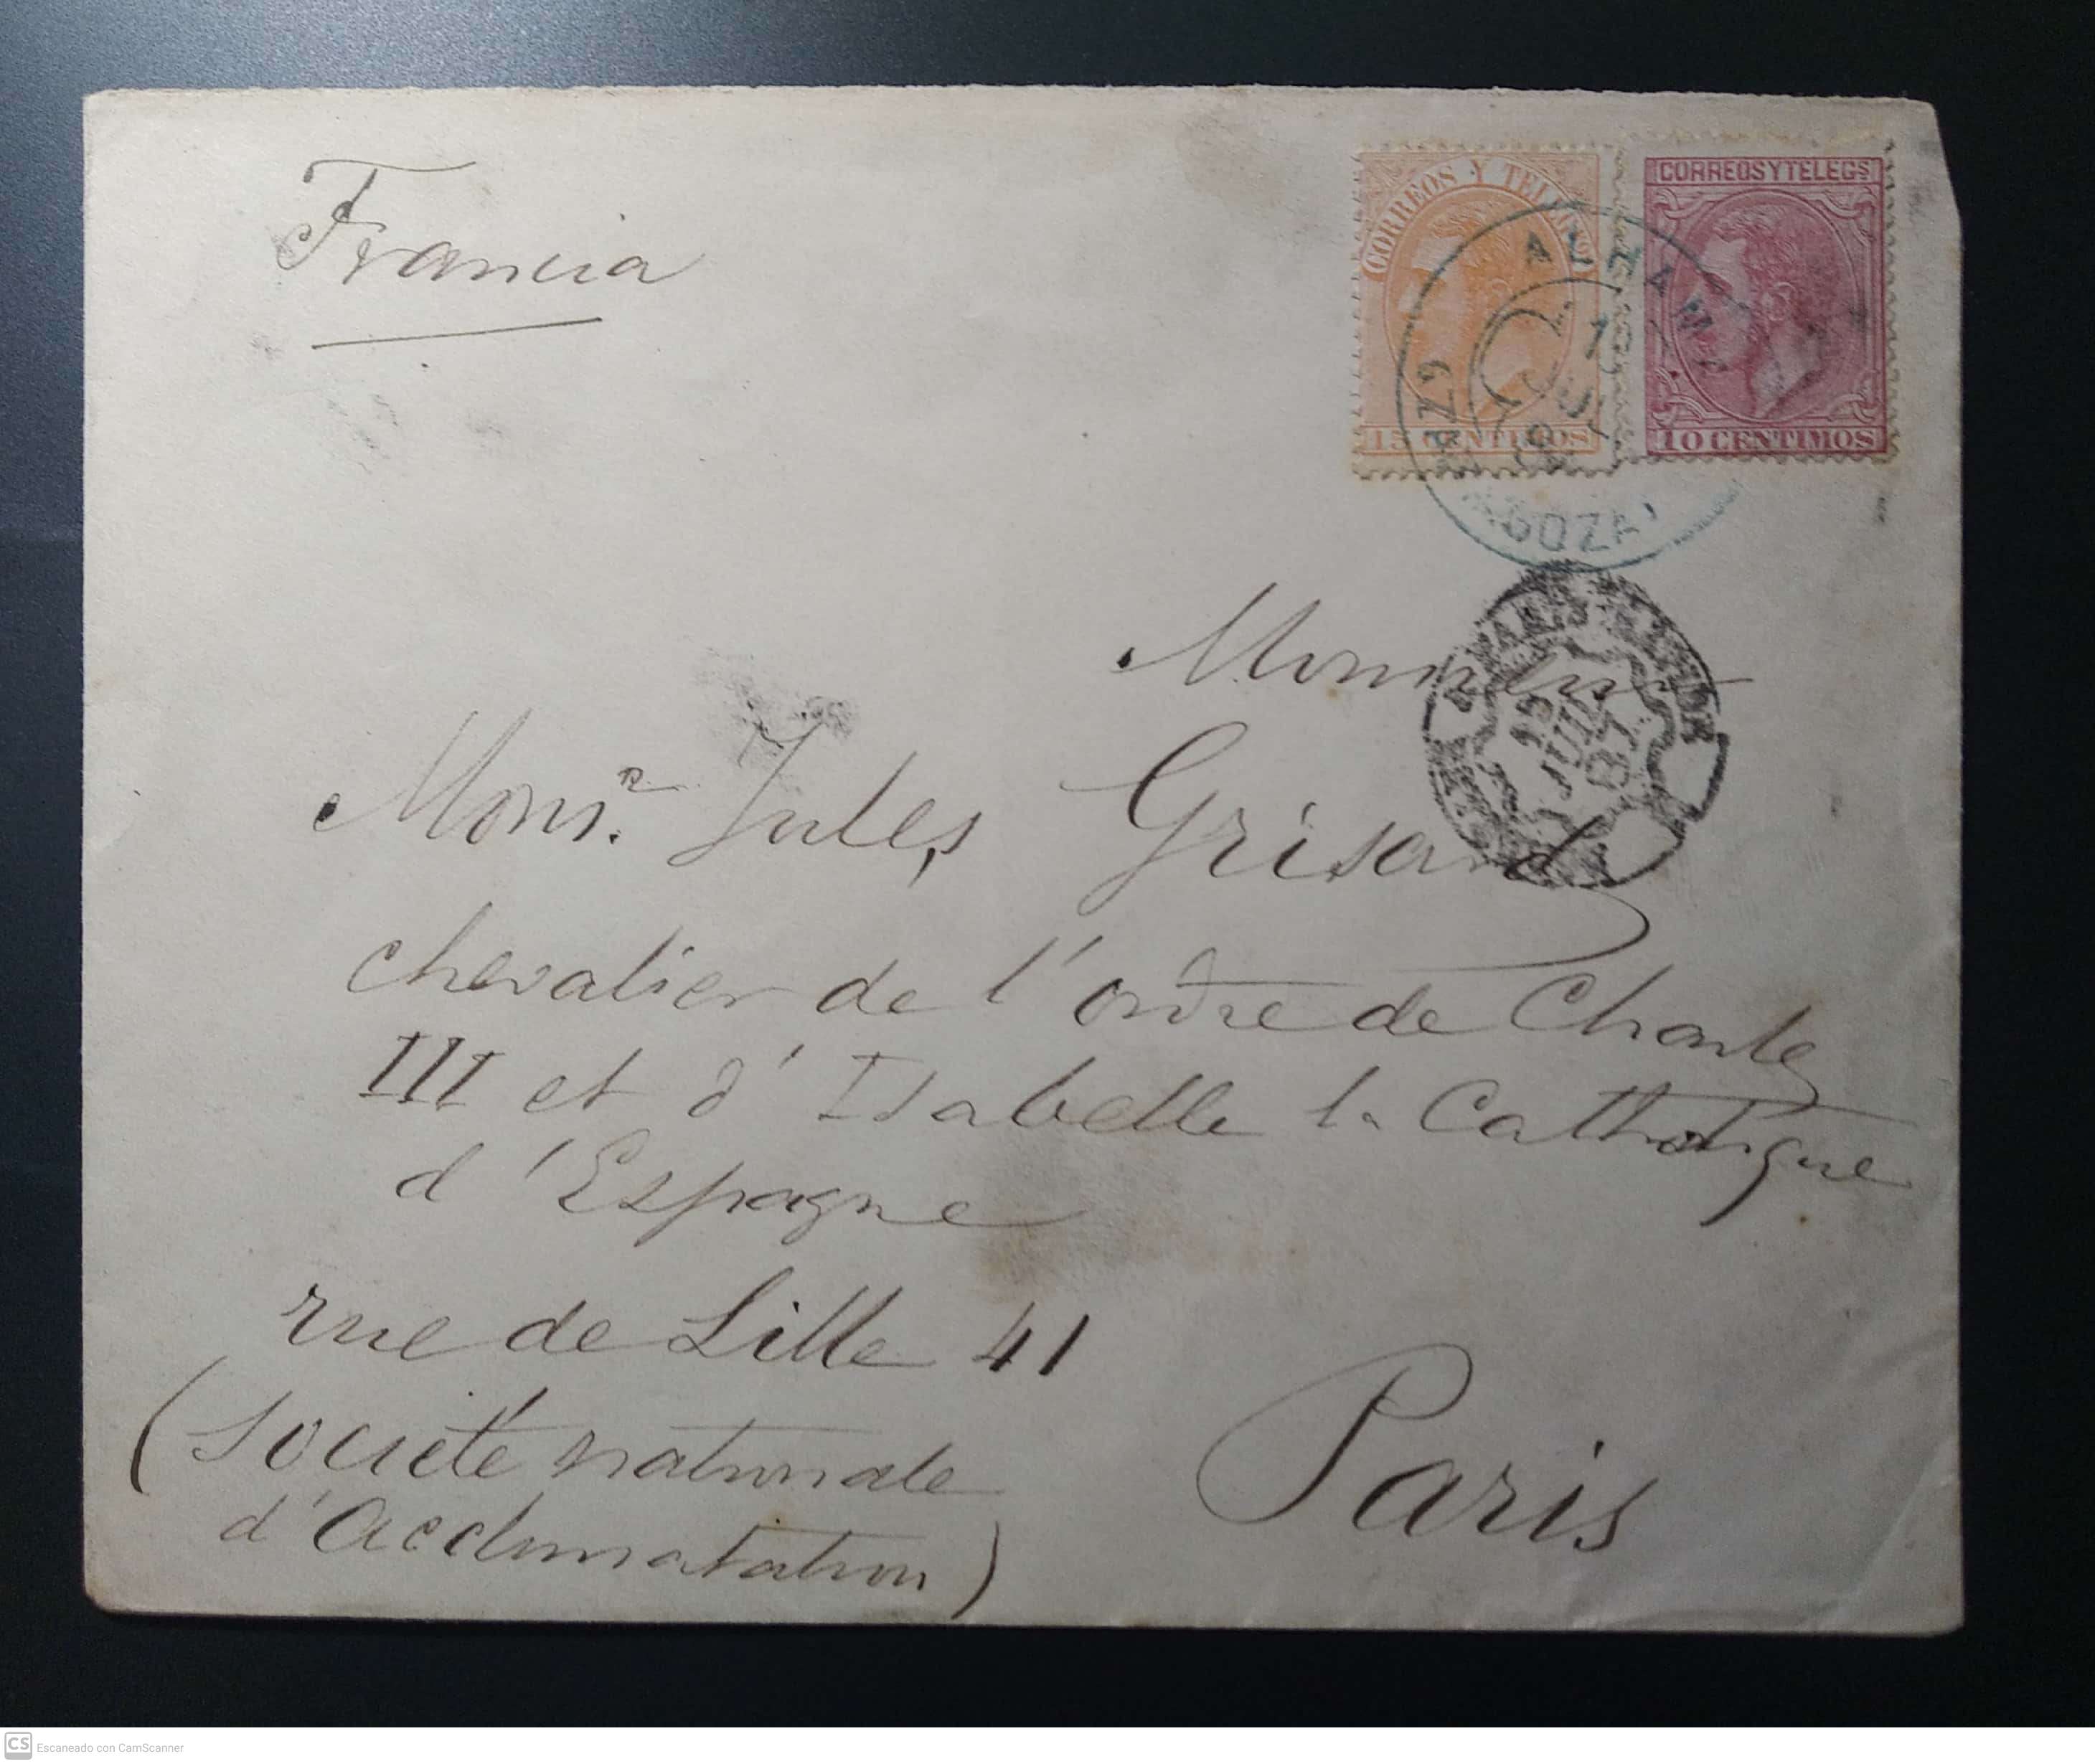 Francia
CORREOS Y TELEGS
15 CENTIMOS
CORREOS Y TELEGS
10 CENTIMOS
ALHAMA
JUL
Monsieur
Monsr. Jules, Grisard
chevalier de l'ordre de Charles
III et d'Isabelle la Catholique
d'Espagne
rue de Lille 41
(Societé nationale
d'Acclimatation)
Paris
JUIL
87
CS Escaneado con CamScanner